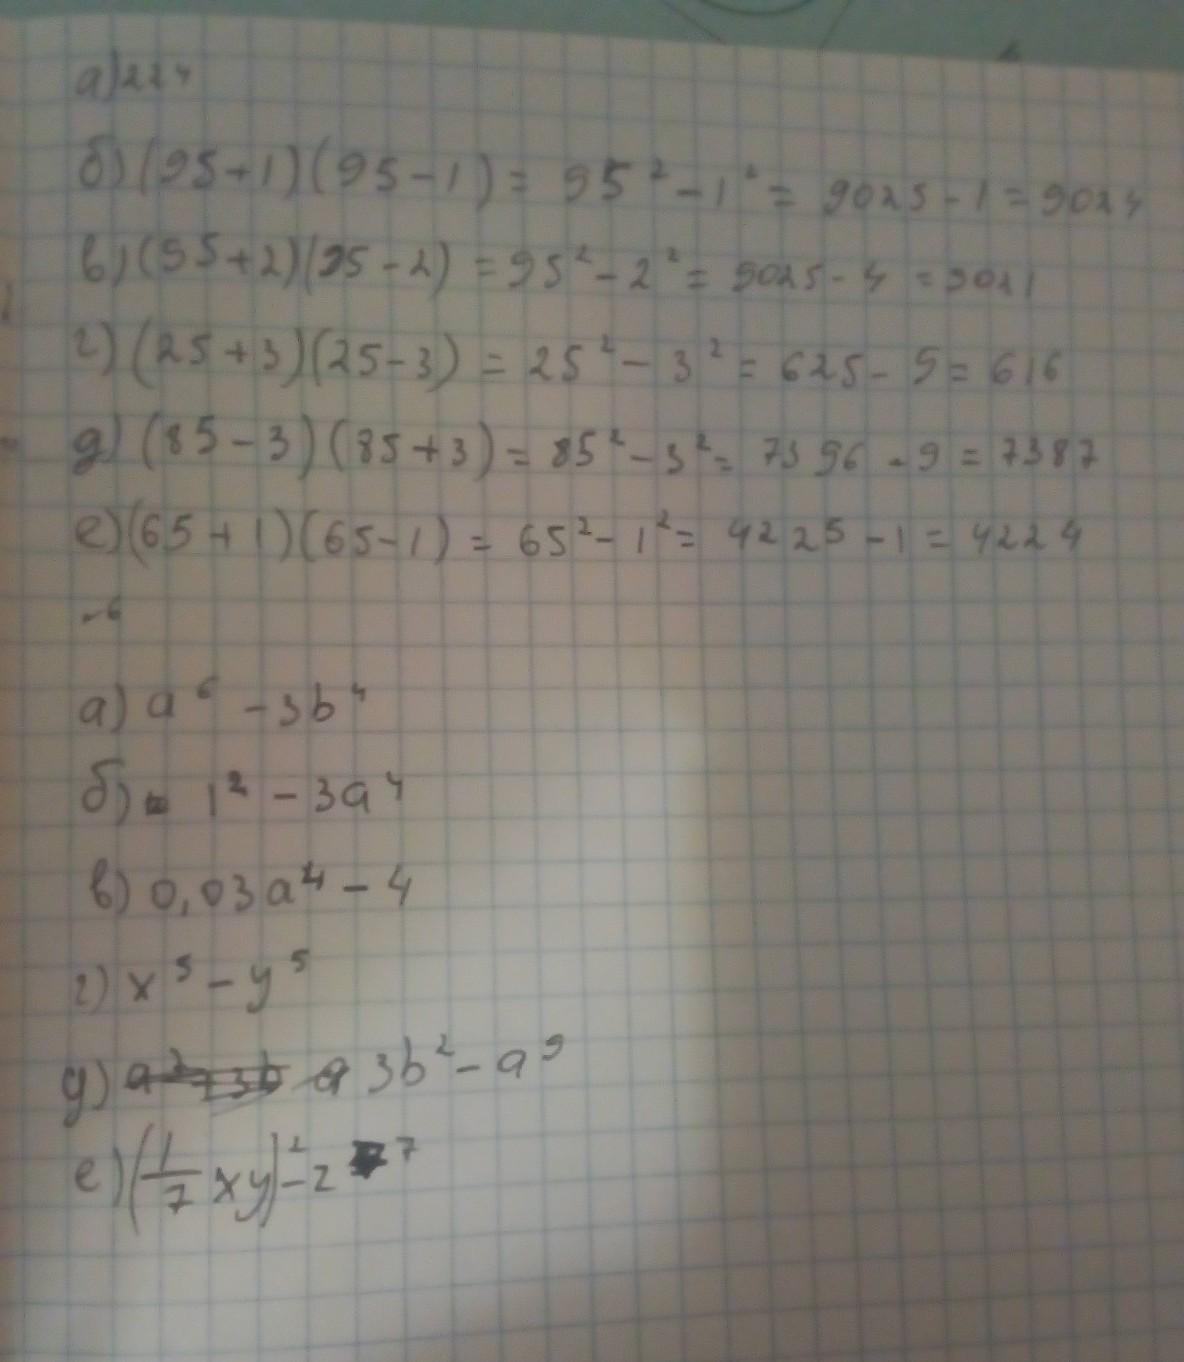 а) 224
б) (95+1)(95-1) = 95² - 1² = 9025 - 1 = 9024
в) (95+2)(95-2) = 95² - 2² = 9025 - 4 = 9021
г) (25+3)(25-3) = 25² - 3² = 625 - 9 = 616
д) (85-3)(85+3) = 85² - 3² = 7396 - 9 = 7387
е) (65+1)(65-1) = 65² - 1² = 4225 - 1 = 4224
~6
а) a⁶ - 3b⁴
б) 1² - 3a⁴
в) 0,03a⁴ - 4
г) x⁵ - y⁵
д) 3b² - a⁹
е) (1/7 xy)² - z⁷